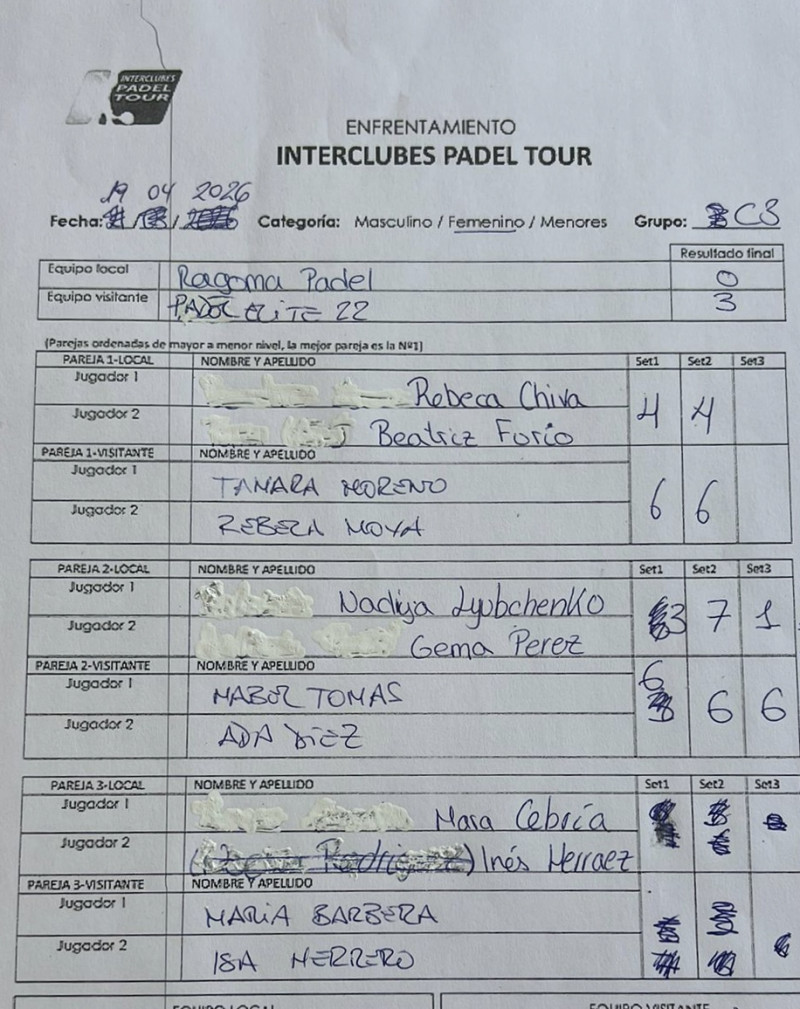 INTERCLUBES
PADEL
TOUR
ENFRENTAMIENTO
INTERCLUBES PADEL TOUR
19 04 2026
Fecha: / / Categoría: Masculino / Femenino / Menores Grupo: C3
Resultado final
Equipo local Ragoma Padel 0
Equipo visitante PADEL ELITE 22 3
(Parejas ordenadas de mayor a menor nivel, la mejor pareja es la Nº1)
PAREJA 1-LOCAL NOMBRE Y APELLIDO Set1 Set2 Set3
Jugador 1 Rebeca Chiva 4 4
Jugador 2 Beatriz Furio
PAREJA 1-VISITANTE NOMBRE Y APELLIDO
Jugador 1 TAMARA MORENO 6 6
Jugador 2 REBECA MOYA
PAREJA 2-LOCAL NOMBRE Y APELLIDO Set1 Set2 Set3
Jugador 1 Nadiya Lyubchenko 3 7 1
Jugador 2 Gema Perez
PAREJA 2-VISITANTE NOMBRE Y APELLIDO
Jugador 1 MABEL TOMAS 6 6 6
Jugador 2 ADA DIEZ
PAREJA 3-LOCAL NOMBRE Y APELLIDO Set1 Set2 Set3
Jugador 1 Mara Cebría
Jugador 2 Inés Herraez
PAREJA 3-VISITANTE NOMBRE Y APELLIDO
Jugador 1 MARIA BARBERA
Jugador 2 ISA HERRERO
EQUIPO LOCAL EQUIPO VISITANTE